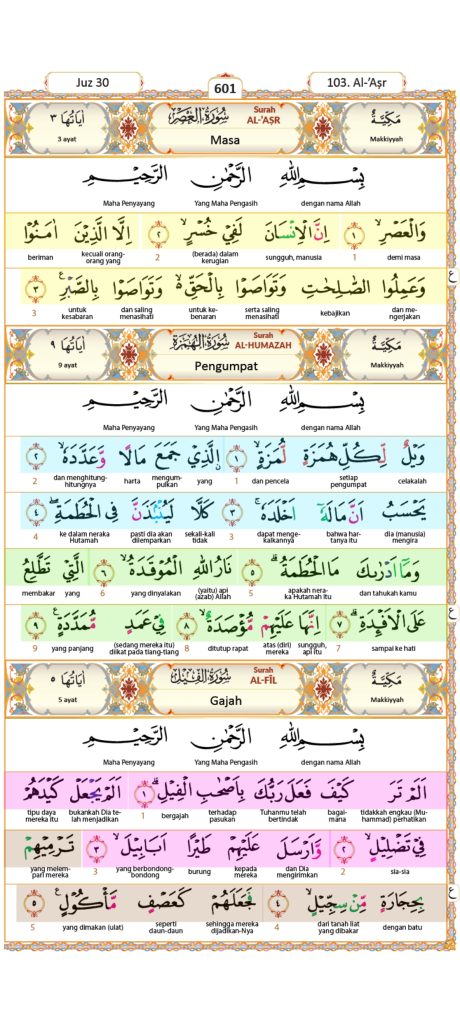 Juz 30 601 103. Al-'Aṣr
مَكِّيَّةٌ سُوْرَةُ الْعَصْرِ Surah AL-'AṢR اٰيَاتُهَا ٣
Makkiyyah Masa 3 ayat
بِسْمِ اللّٰهِ الرَّحْمٰنِ الرَّحِيْمِ
dengan nama Allah Yang Maha Pengasih Maha Penyayang
وَالْعَصْرِۙ ١ اِنَّ الْاِنْسَانَ لَفِيْ خُسْرٍۙ ٢ اِلَّا الَّذِيْنَ اٰمَنُوْا
demi masa 1 sungguh, manusia (berada) dalam kerugian 2 kecuali orang-orang yang beriman
وَعَمِلُوا الصّٰلِحٰتِ وَتَوَاصَوْا بِالْحَقِّ ەۙ وَتَوَاصَوْا بِالصَّبْرِ ࣖ ٣ ع
dan mengerjakan kebajikan serta saling menasihati untuk kebenaran dan saling menasihati untuk kesabaran 3
مَكِّيَّةٌ سُوْرَةُ الْهُمَزَةِ Surah AL-HUMAZAH اٰيَاتُهَا ٩
Makkiyyah Pengumpat 9 ayat
بِسْمِ اللّٰهِ الرَّحْمٰنِ الرَّحِيْمِ
dengan nama Allah Yang Maha Pengasih Maha Penyayang
وَيْلٌ لِّكُلِّ هُمَزَةٍ لُّمَزَةٍۙ ١ ۨالَّذِيْ جَمَعَ مَالًا وَّعَدَّدَهٗۙ ٢
celakalah setiap pengumpat dan pencela 1 yang mengumpulkan harta dan menghitung-hitungnya 2
يَحْسَبُ اَنَّ مَالَهٗٓ اَخْلَدَهٗۚ ٣ كَلَّا لَيُنْۢبَذَنَّ فِى الْحُطَمَةِۖ ٤
dia (manusia) mengira bahwa hartanya itu dapat mengekalkannya 3 sekali-kali tidak pasti dia akan dilemparkan ke dalam neraka Hutamah 4
وَمَآ اَدْرٰىكَ مَا الْحُطَمَةُۗ ٥ نَارُ اللّٰهِ الْمُوْقَدَةُۙ ٦ الَّتِيْ تَطَّلِعُ
dan tahukah kamu apakah neraka Hutamah itu 5 (yaitu) api (azab) Allah yang dinyalakan 6 yang membakar
عَلَى الْاَفْـِٕدَةِۗ ٧ اِنَّهَا عَلَيْهِمْ مُّؤْصَدَةٌۙ ٨ فِيْ عَمَدٍ مُّمَدَّدَةٍ ࣖ ٩ ع
sampai ke hati 7 sungguh, api itu atas (diri) mereka ditutup rapat 8 (sedang mereka itu) diikat pada tiang-tiang yang panjang 9
مَكِّيَّةٌ سُوْرَةُ الْفِيْلِ Surah AL-FĪL اٰيَاتُهَا ٥
Makkiyyah Gajah 5 ayat
بِسْمِ اللّٰهِ الرَّحْمٰنِ الرَّحِيْمِ
dengan nama Allah Yang Maha Pengasih Maha Penyayang
اَلَمْ تَرَ كَيْفَ فَعَلَ رَبُّكَ بِاَصْحٰبِ الْفِيْلِۗ ١ اَلَمْ يَجْعَلْ كَيْدَهُمْ
tidakkah engkau (Muhammad) perhatikan bagaimana Tuhanmu telah bertindak terhadap pasukan bergajah 1 bukankah Dia telah menjadikan tipu daya mereka itu
فِيْ تَضْلِيْلٍۙ ٢ وَّاَرْسَلَ عَلَيْهِمْ طَيْرًا اَبَابِيْلَۙ ٣ تَرْمِيْهِمْ
sia-sia 2 dan Dia mengirimkan kepada mereka burung yang berbondong-bondong 3 yang melempari mereka
بِحِجَارَةٍ مِّنْ سِجِّيْلٍۙ ٤ فَجَعَلَهُمْ كَعَصْفٍ مَّأْكُوْلٍ ࣖ ٥ ع
dengan batu dari tanah liat yang dibakar 4 sehingga mereka dijadikan-Nya seperti daun-daun yang dimakan (ulat) 5